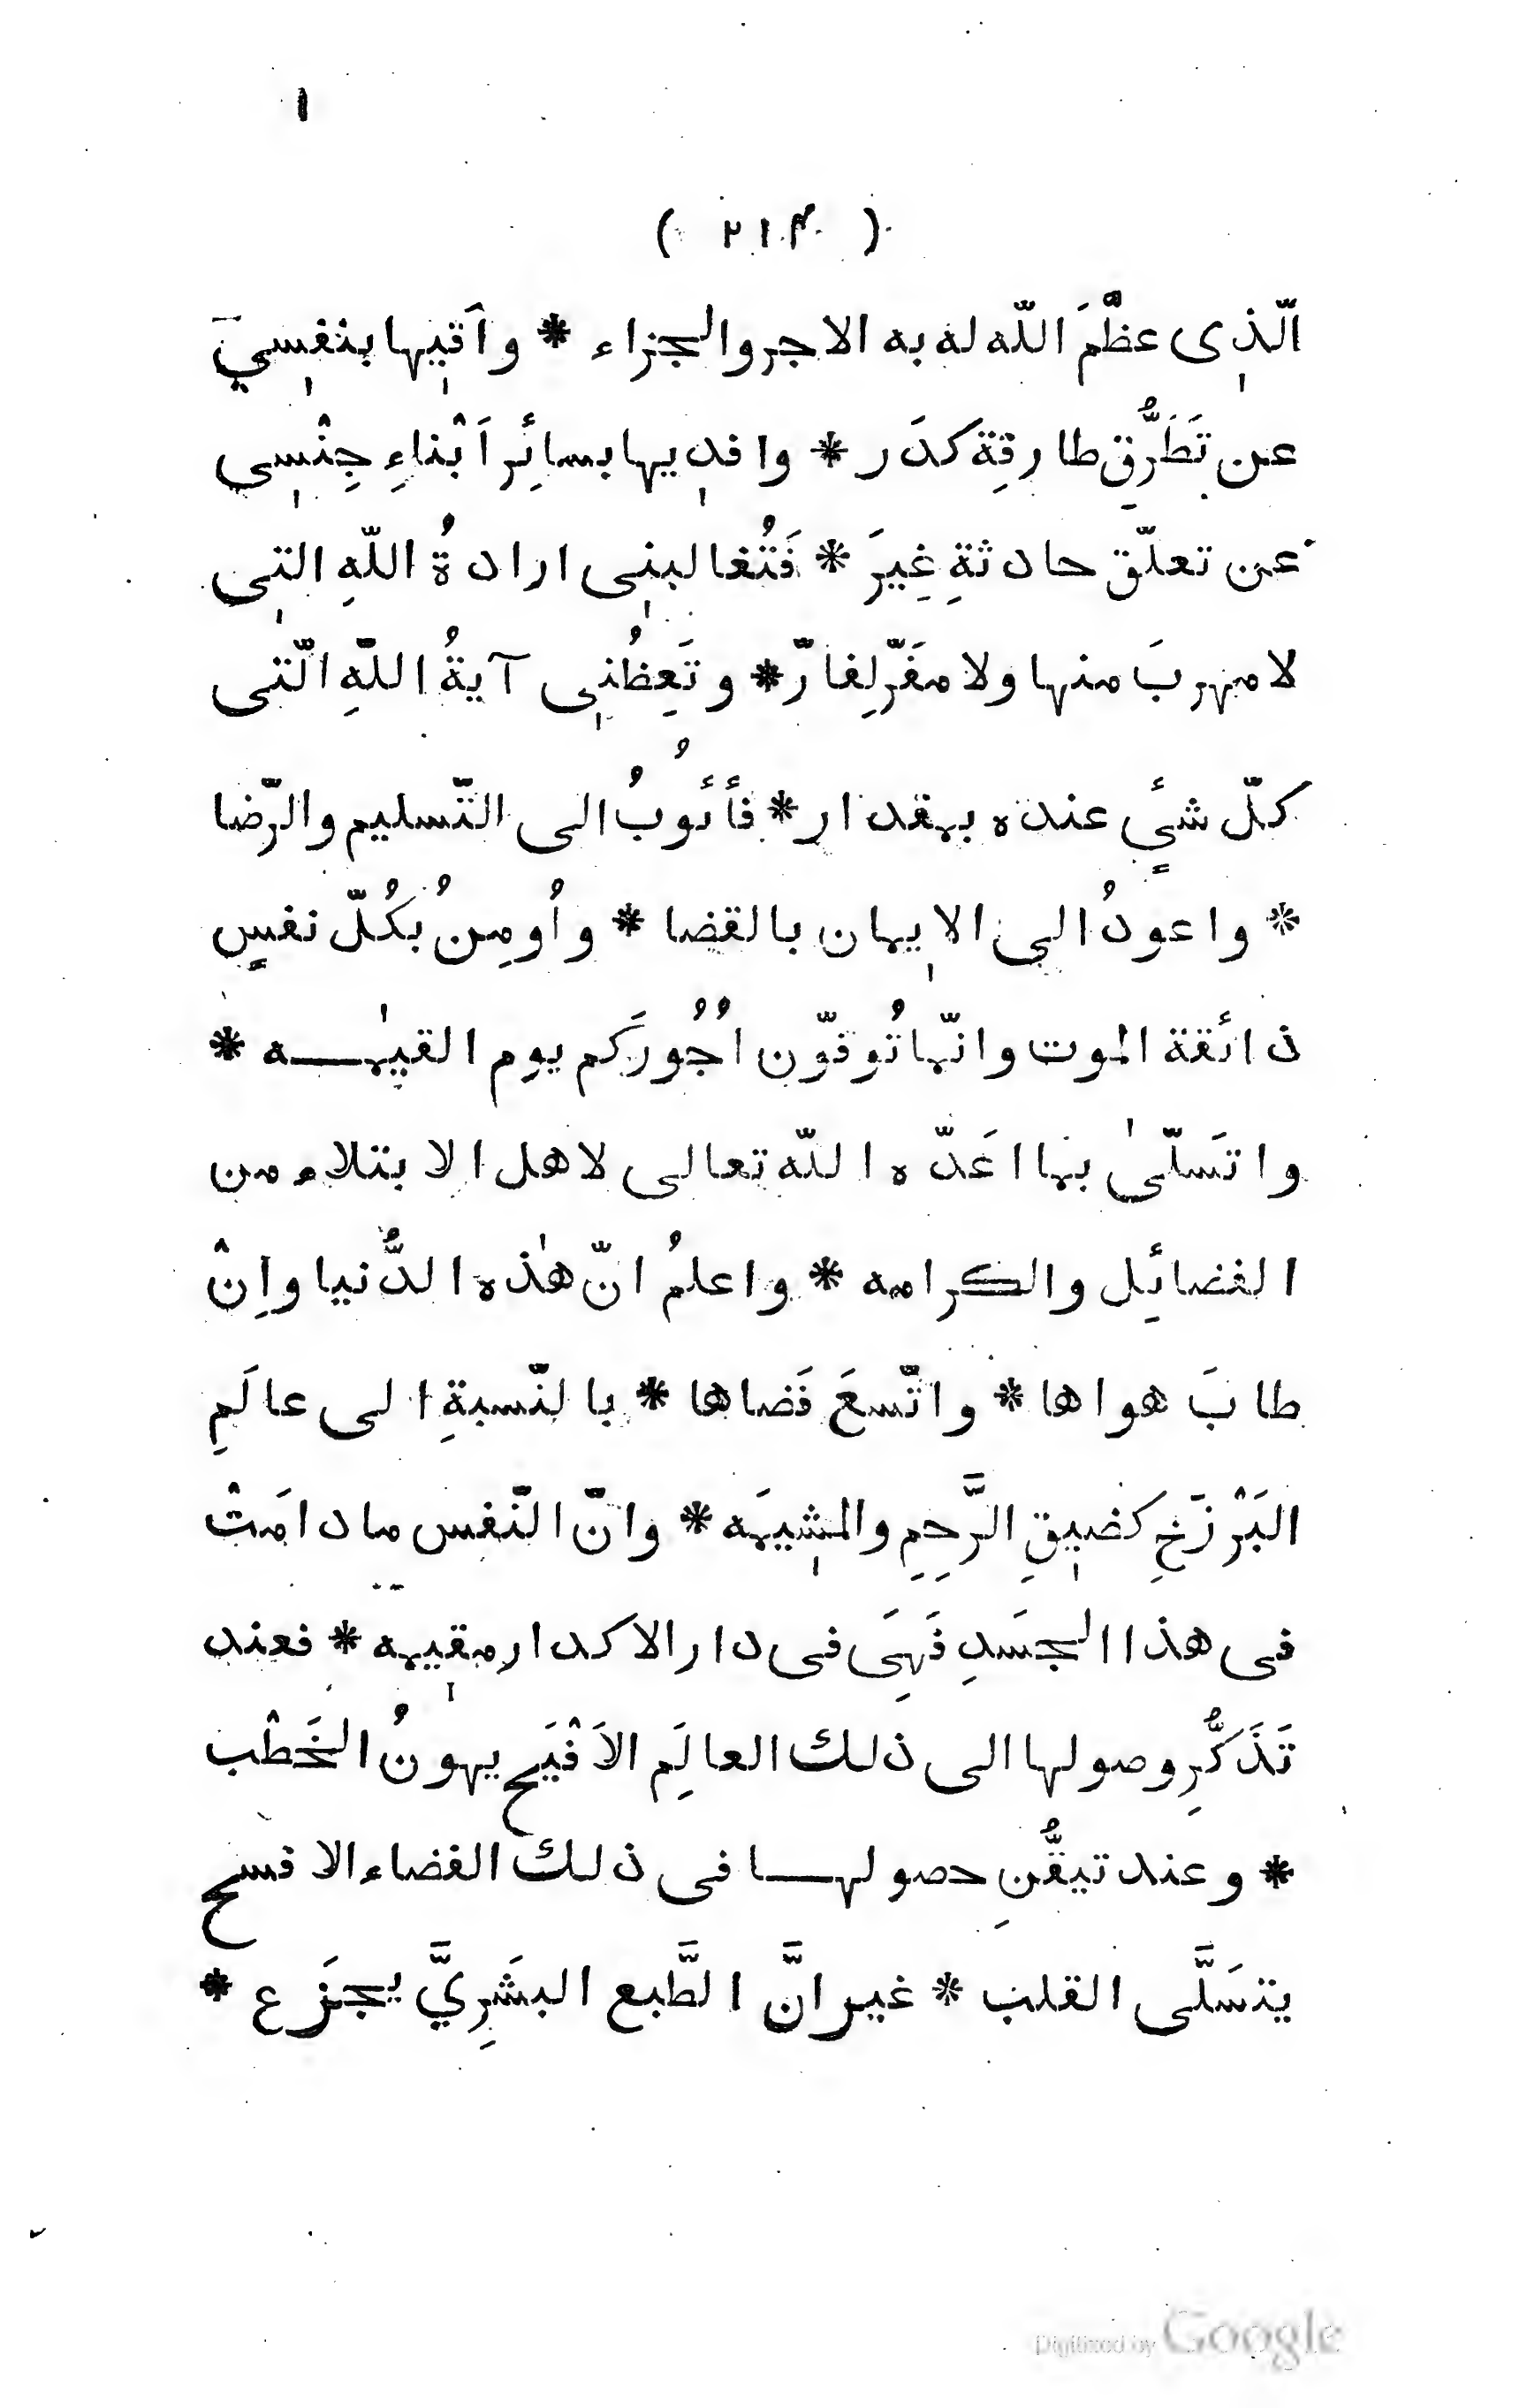 ١
( ٢١٣ )
الّذى عظَّمَ اللّه له به الاجر والجزاء * واَقيها بنفسي
عن تَطَرُّقِ طارقةِ كدَر * وافديها بسائِر اَبْناءِ جِنْسى
عن تعلّق حادثةِ غِيَر * فَتُغالبنى ارادةُ اللّهِ التى
لا مهربَ منها ولا مفَرّ لِفارّ * وتَعِظُنى آيةُ اللّهِ الّتى
كلّ شئٍ عنده بمقدار * فأئوبُ الى التّسليم والرّضا
* واعودُ الى الايمان بالقضا * واُومِنُ بكُلّ نفسٍ
ذائقة الموت وانّما تُوفّون اُجُورَكم يوم القيٰمـــه *
واتَسلّىٰ بما اعَدّه اللّه تعالى لاهل الابتلاء من
الفضائِل والكرامه * واعلمُ انّ هٰذه الدُّنيا واِنْ
طابَ هواها * واتّسعَ فَضاها * بالنّسبةِ الى عالَمِ
البَرْزَخِ كضيقِ الرَّحِمِ والمشيمَه * وانّ النّفس مادامَتْ
فى هذا الجسَدِ فَهِىَ فى دار الاكدار مقيمه * فعند
تَذَكُّرِ وصولها الى ذلك العالِم الاَفْيَح يهونُ الخَطْب
* وعند تيقُّنِ حصولهـــا فى ذلك الفضاء الافسح
يتسَلَّى القلب * غير انَّ الطَّبع البشَرِيَّ يجزَع *
Digitized by Google